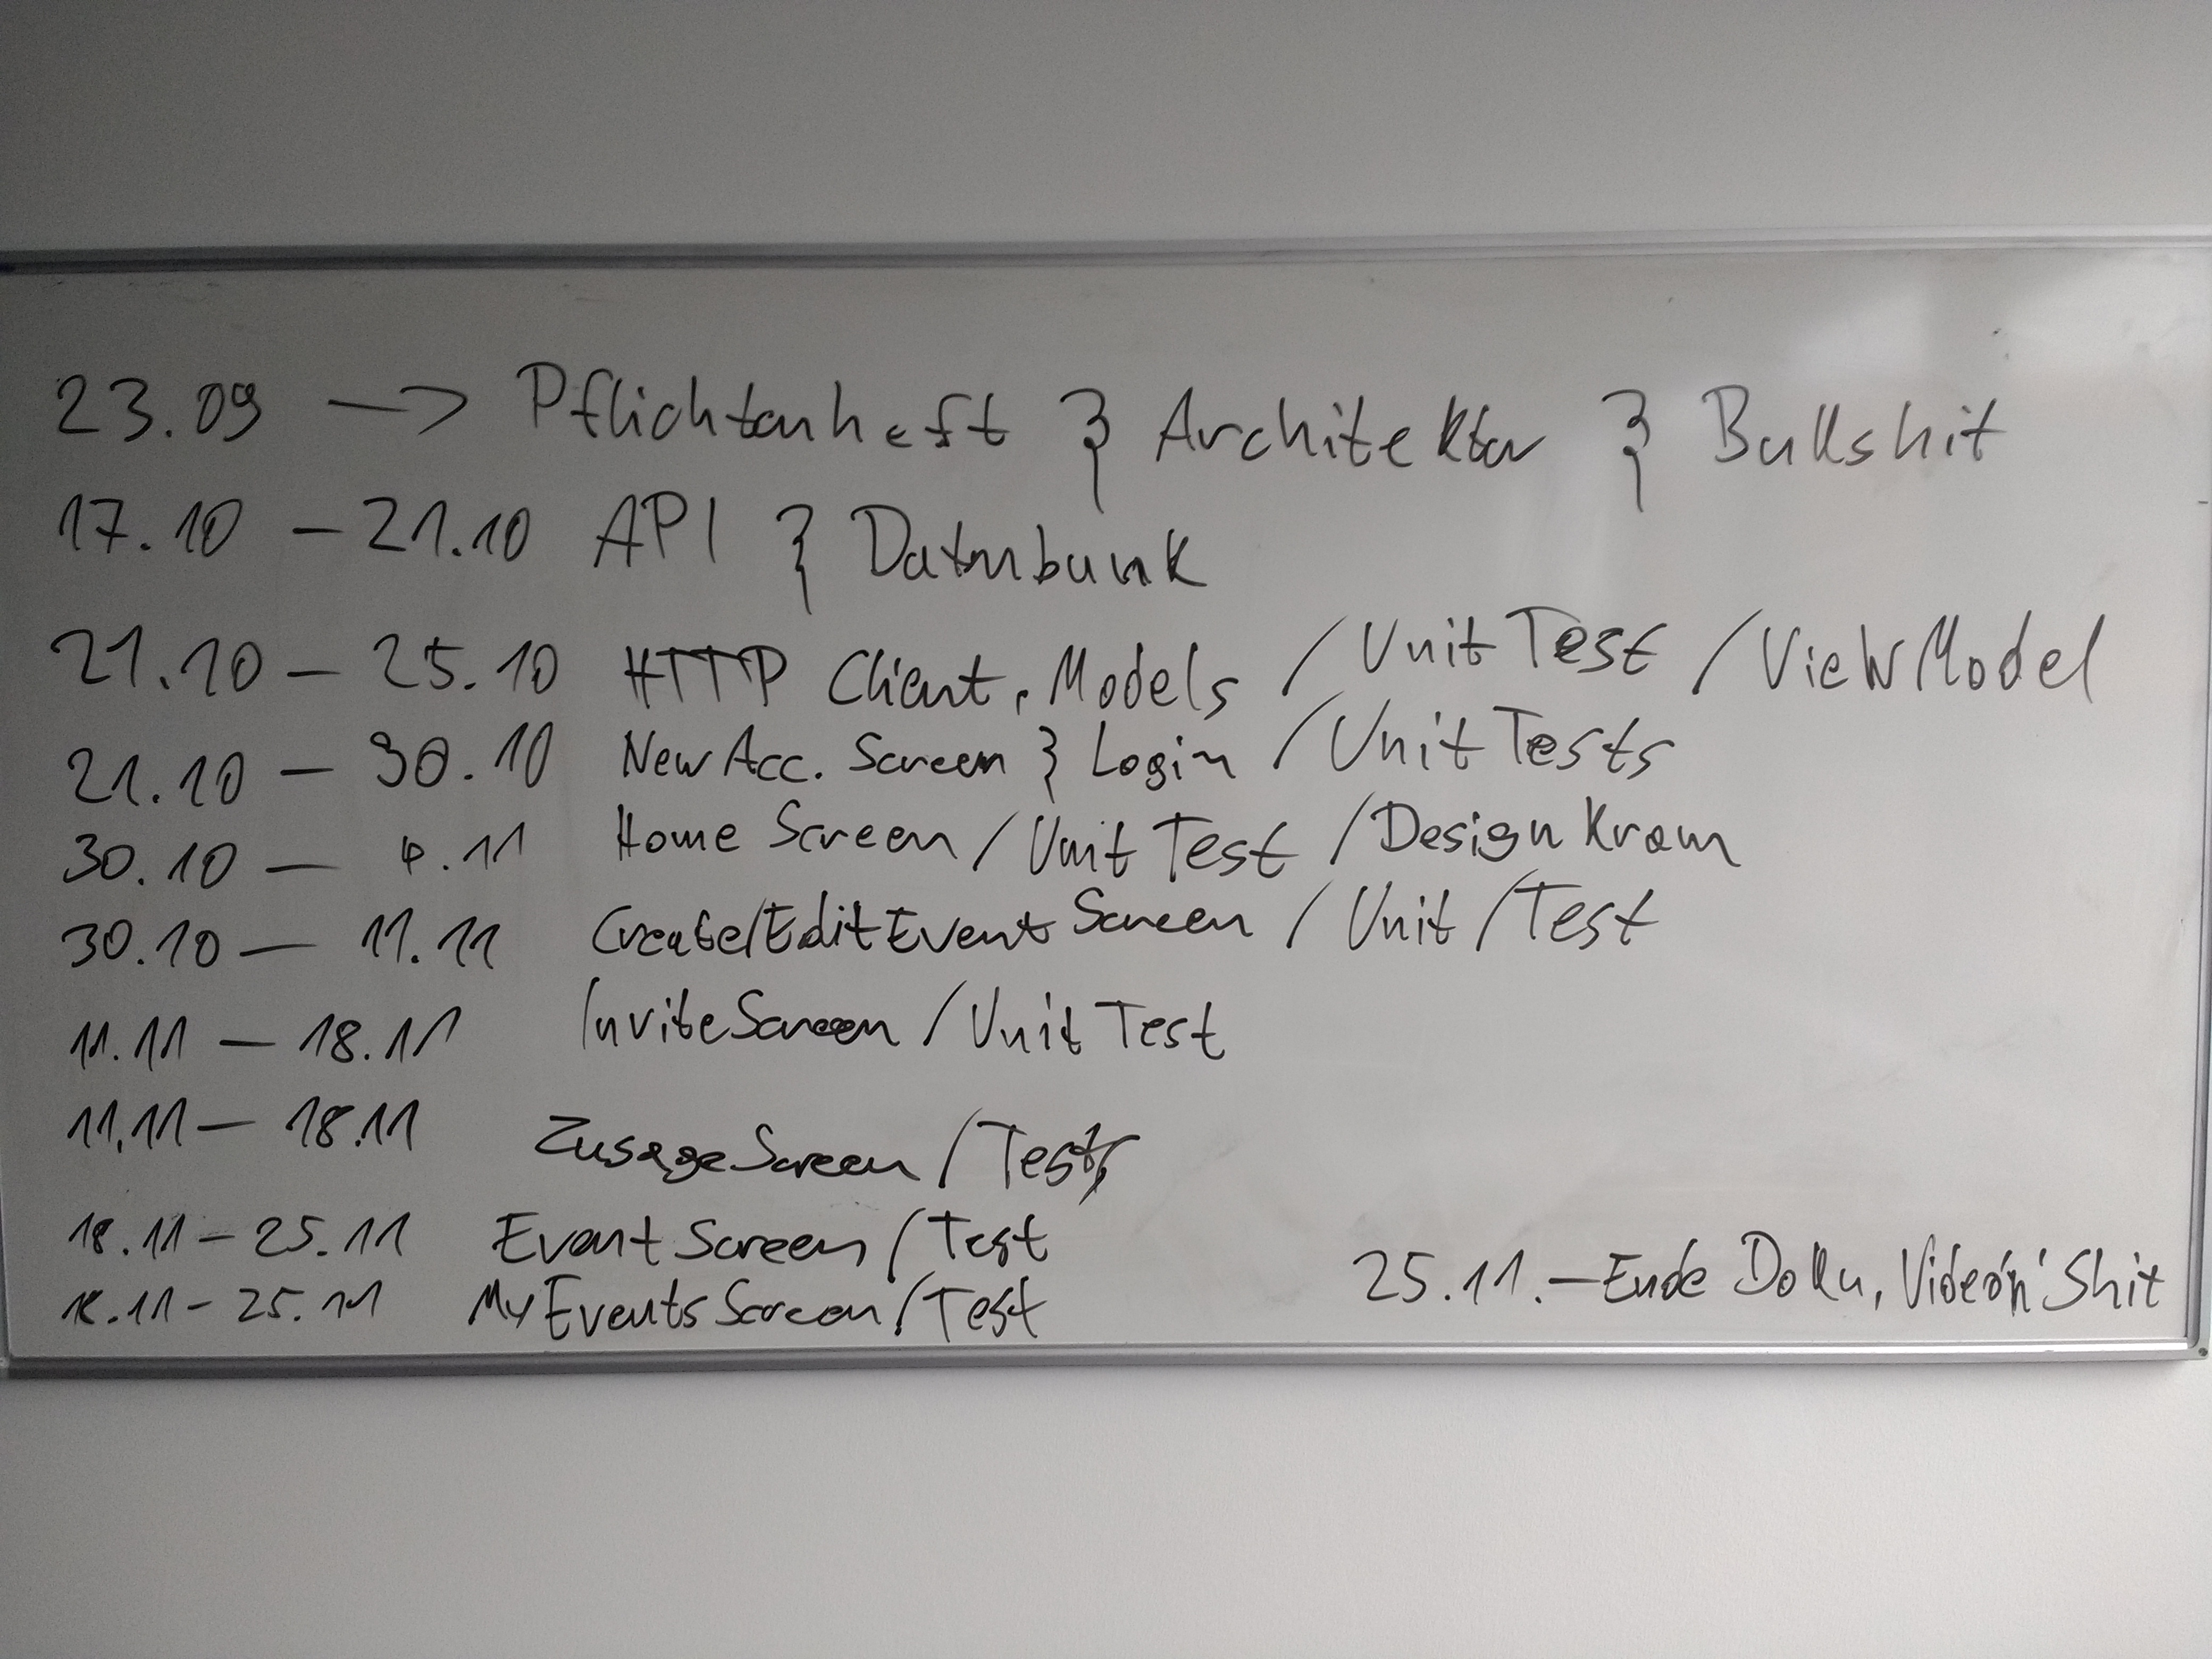 23.09 —> Pflichtenheft & Architektur & Bullshit
17.10 – 21.10 API & Datenbank
21.10 – 25.10 HTTP Client, Models / Unit Test / ViewModel
21.10 – 30.10 New Acc. Screen & Login / Unit Tests
30.10 – 4.11 Home Screen / Unit Test / Design Kram
30.10 – 11.11 Create/Edit Event Screen / Unit / Test
11.11 – 18.11 Invite Screen / Unit Test
11.11 – 18.11 Zusage Screen / Test
18.11 – 25.11 Event Screen / Test
18.11 – 25.11 My Events Screen / Test
25.11. – Ende Doku, Video 'n' Shit